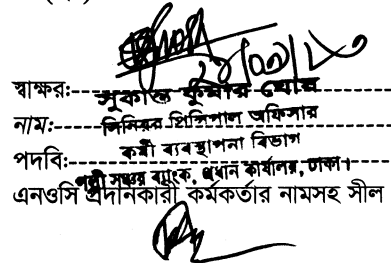 স্বাক্ষর:
সুকান্ত কুমার ঘোষ
নাম:
সিনিয়র প্রিন্সিপাল অফিসার
পদবি:
কর্মী ব্যবস্থাপনা বিভাগ
পল্লী সঞ্চয় ব্যাংক, প্রধান কার্যালয়, ঢাকা।
এনওসি প্রদানকারী কর্মকর্তার নামসহ সীল